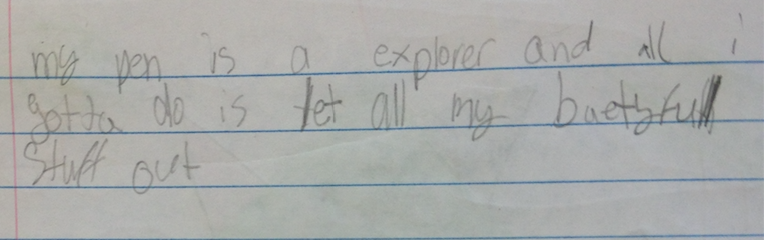 my pen is a explorer and all i
gotta do is let all my buetyfull
Stuff out